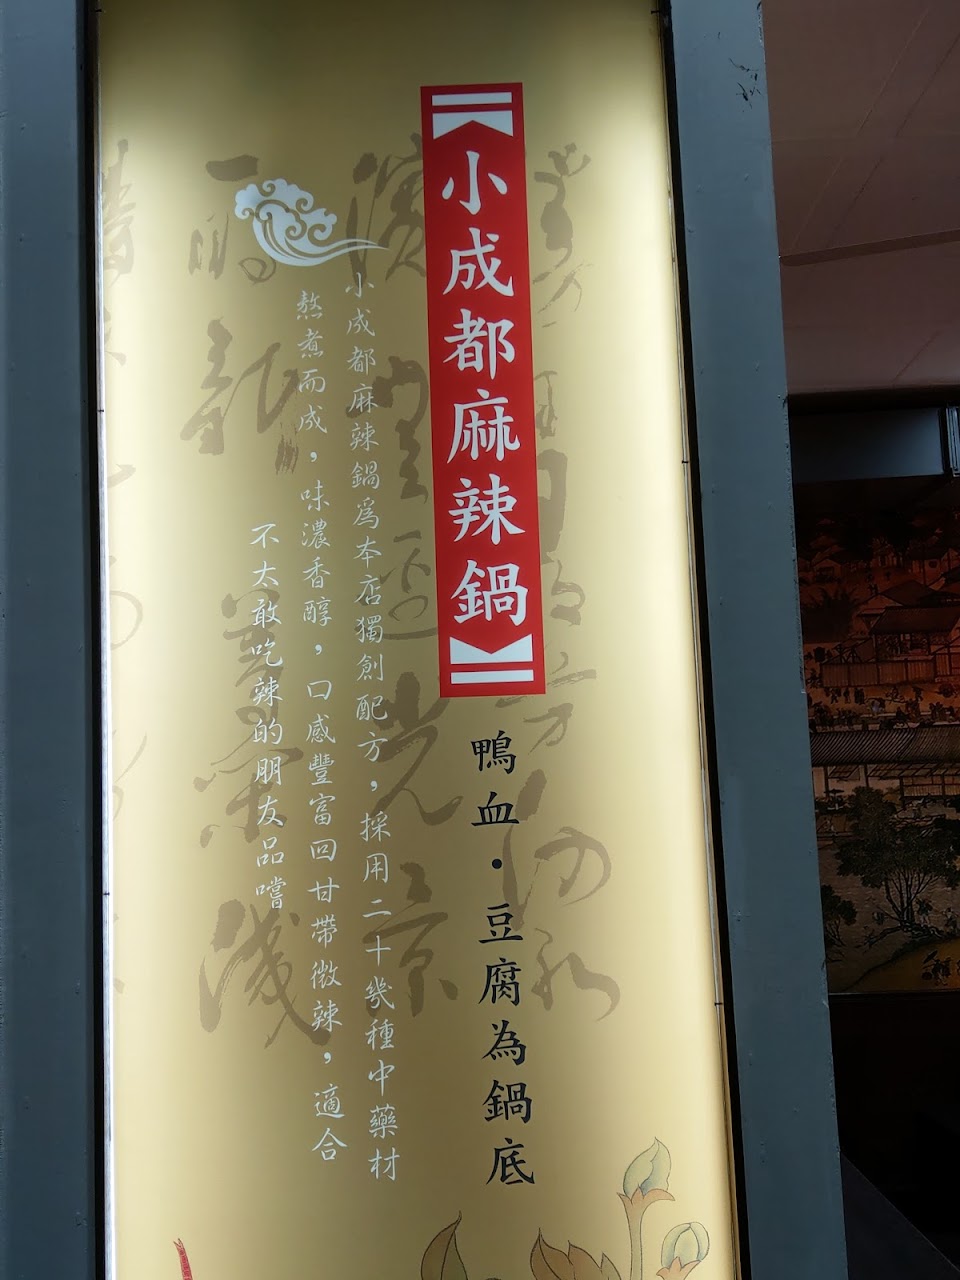 小成都麻辣鍋
鴨血·豆腐為鍋底
小成都麻辣鍋爲本店獨創配方，採用二十幾種中藥材
熬煮而成，味濃香醇，口感豐富回甘帶微辣，適合
不太敢吃辣的朋友品嚐